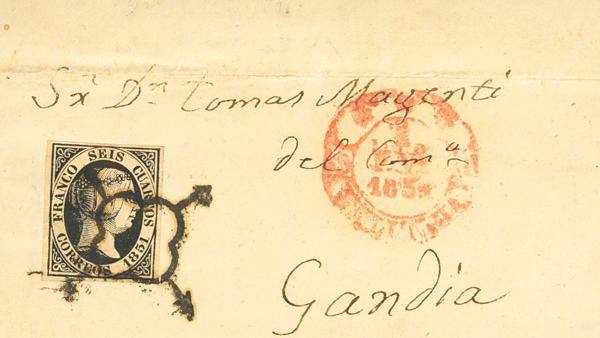 Sr. Dn. Tomas Magenti
del Com.o
Gandia
FRANCO SEIS CUARTOS
CORREOS 1851
185